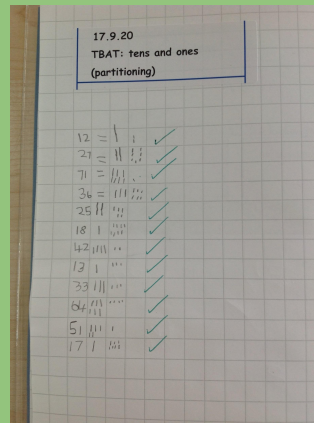 17.9.20
TBAT: tens and ones
(partitioning)
12 =
27 =
71 =
36 =
25
18
42
13
33
64
51
17